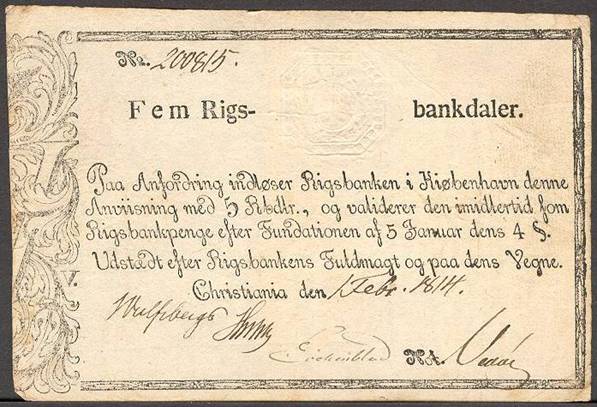 No. 200815.
Fem Rigs- bankdaler.
Paa Anfordring indløser Rigsbanken i Kiøbenhavn denne
Anviisning med 5 Rbdlr., og validerer den imidlertid som
Rigsbankpenge efter Fundationen af 5 Januar dens 4 §.
Udstædt efter Rigsbankens Fuldmagt og paa dens Vegne.
Christiania den 1 Febr. 1814.
Wulfsberg